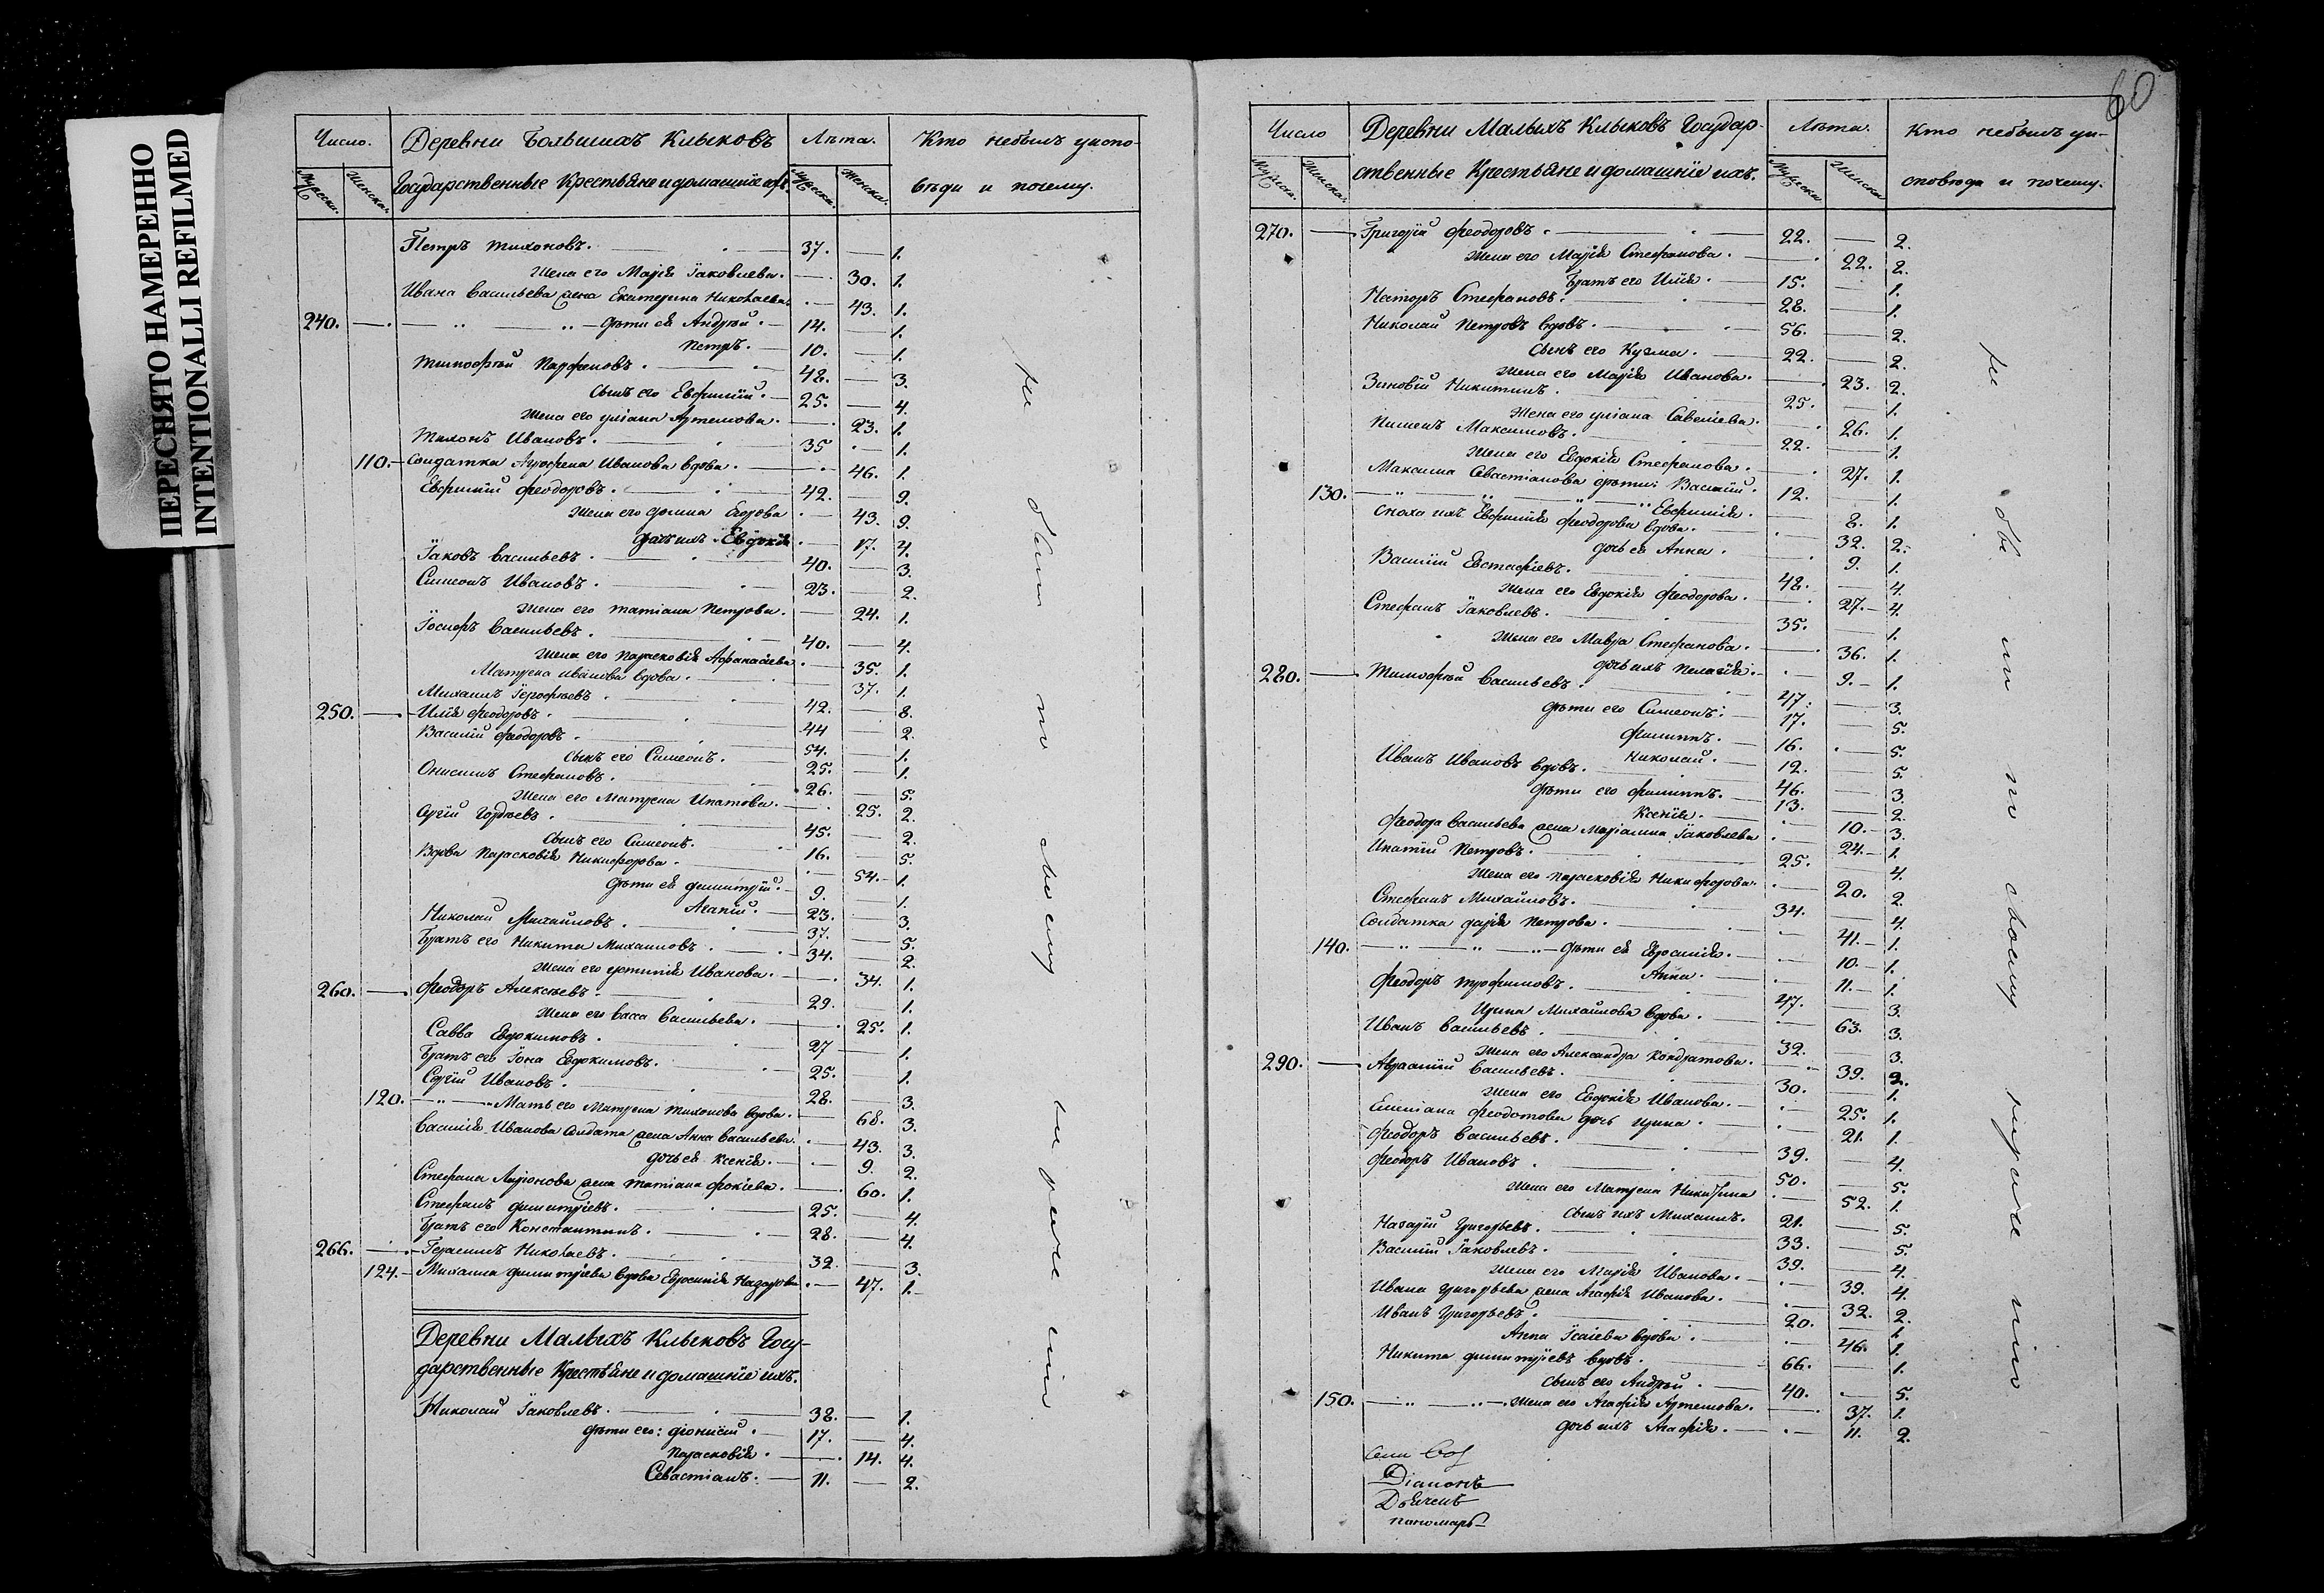 ПЕРЕСНЯТО НАМЕРЕННО
INTENTIONALLI REFILMED
Число. Деревни Большихъ Клыковъ Лѣта. Кто небылъ уиспо-
Мужеска. Женска. Государственные Крестьяне и домашніе ихъ. Мужеска. Женска. вѣди и почему.
Петръ Тихоновъ. 37. 1.
Жена его Марія Іаковлева. 30. 1.
Ивана Васильева жена Екатерина Николаева. 43. 1.
240. дѣти ея Андрей. 14. 1.
Петръ. 10. 1.
Тимофѣй Парфеновъ. 48. 3.
Сынъ его Евфимій. 25. 4.
Жена его Уліана Артемова. 23. 1.
Тихонъ Ивановъ. 35 1.
110. Солдатка Агрофена Иванова вдова. 46. 1.
Евфимій Феодоровъ. 42. 9.
Жена его Домна Егорова 43. 9.
дочь ихъ Евдокія 17. 4.
Іаковъ Васильевъ. 40. 3.
Симеонъ Ивановъ. 23. 2.
Жена его Татіана Петрова. 24. 1.
Іосифъ Васильевъ. 40. 4.
Жена его Парасковія Афанасіева 35. 1.
Матрена Иванова вдова. 37. 1.
Михаилъ Іерофѣевъ. 42. 8.
250. Илія Феодоровъ. 44 2.
Василій Феодоровъ. 54. 1.
Сынъ его Симеонъ. 25. 1.
Онисимъ Стефановъ. 26. 5.
Жена его Матрена Ипатова. 25. 2.
Сергій Гордѣевъ. 45. 2.
Сынъ его Симеонъ. 16. 5.
Вдова Парасковія Никифорова. 54. 1.
дѣти ея Димитрій. 9. 1.
Агапій. 23. 3.
Николай Михайловъ. 37. 5.
Братъ его Никита Михаиловъ. 34. 2.
Жена его Устинія Иванова. 34. 1.
260. Феодоръ Алексѣевъ. 29. 1.
Жена его Васса Васильева. 25. 1.
Савва Евдокимовъ. 27 1.
Братъ его Іона Евдокимовъ. 25. 1.
Сергій Ивановъ. 28. 3.
120. Мать его Матрена Тихонова вдова. 68. 3.
Василія Иванова Солдата жена Анна Васильева. 43. 3.
дочь ея Ксенія. 9. 2.
Стефана Ларіонова жена Татіана Фокіева. 60. 1.
Стефанъ Димитріевъ. 25. 4.
Братъ его Константинъ. 28. 4.
266. Герасимъ Николаевъ. 32. 3.
124. Михаила Димитріева вдова Евросинія Назарова. 47. 1.
Деревни Малыхъ Клыковъ Госу-
дарственные Крестьяне и домашніе ихъ.
Николай Іаковлевъ. 38. 1.
дѣти его: Діонисій. 17. 4.
Парасковія. 14. 4.
Севастіанъ. 11. 2.
60
Число Деревни Малыхъ Клыковъ Государ- Лѣта. Кто небылъ уи-
Мужеска. Женска. ственные Крестьяне и домашніе ихъ. Мужеска Женска сповѣди и почему.
270. Григорій Феодоровъ. 22. 2.
Жена его Марія Стефанова. 22. 2.
Братъ его Илія. 15. 1.
Несторъ Стефановъ. 28. 1.
Николай Петровъ вдовъ. 56. 2.
Сынъ его Кузма. 22. 2.
Жена его Марія Иванова. 23. 2.
Зиновій Никитинъ. 25. 1.
Жена его Уліана Савеліева. 26. 1.
Пименъ Максимовъ. 22. 1.
Жена его Евдокія Стефанова. 27. 1.
Максима Севастіанова дѣти: Василій. 12. 1.
130. Евфимія. 8. 1.
Сноха ихъ Евфимія Феодорова вдова. 32. 2.
дочь ея Анна. 9. 1.
Василій Евстафіевъ. 48. 4.
Жена его Евдокія Феодорова. 27. 4.
Стефанъ Іаковлевъ. 35. 1.
Жена его Мавра Стефанова. 36. 1.
дочь ихъ Пелагія. 9. 1.
280. Тимофѣй Васильевъ. 47. 3.
дѣти его Симеонъ. 17. 5.
Филиппъ. 16. 5.
Николай. 12. 5.
Иванъ Ивановъ вдовъ. 46. 3.
дѣти его Филиппъ. 13. 2.
Ксенія. 10. 3.
Феодора Васильева жена Маріамна Іаковлева 24. 1.
Ипатій Петровъ. 25. 4.
Жена его Парасковія Никифорова. 20. 2.
Стефанъ Михайловъ. 34. 4.
Солдатка Дарія Петрова. 41. 1.
140. дѣти ея Евросинія. 10. 1.
Анна. 11. 1.
Феодоръ Трофимовъ. 47. 3.
Ирина Михаилова вдова. 63. 3.
Иванъ Васильевъ. 32. 3.
Жена его Александра Кондратова. 39. 2.
290. Авраамій Васильевъ. 30. 1.
Жена его Евдокія Иванова. 25. 1.
Емиліана Феодотова дочь Ирина. 21. 1.
Феодоръ Васильевъ. 39. 4.
Феодоръ Ивановъ. 50. 5.
Жена его Матрена Никитина 52. 1.
Сынъ ихъ Михаилъ. 21. 5.
Назарій Григорьевъ. 33. 5.
Василій Іаковлевъ. 39. 4.
Жена его Марія Иванова. 39. 4.
Ивана Григорьева жена Агафія Иванова. 32. 2.
Иванъ Григорьевъ. 20. 1.
Анна Исаіева вдова. 46. 1.
Никита Димитріевъ вдовъ. 66. 1.
Сынъ его Андрей. 40. 5.
150. Жена его Агафія Артемова. 37. 1.
дочь ихъ Агафія. 11. 2.
Діаконъ
Дьячекъ
пономарь